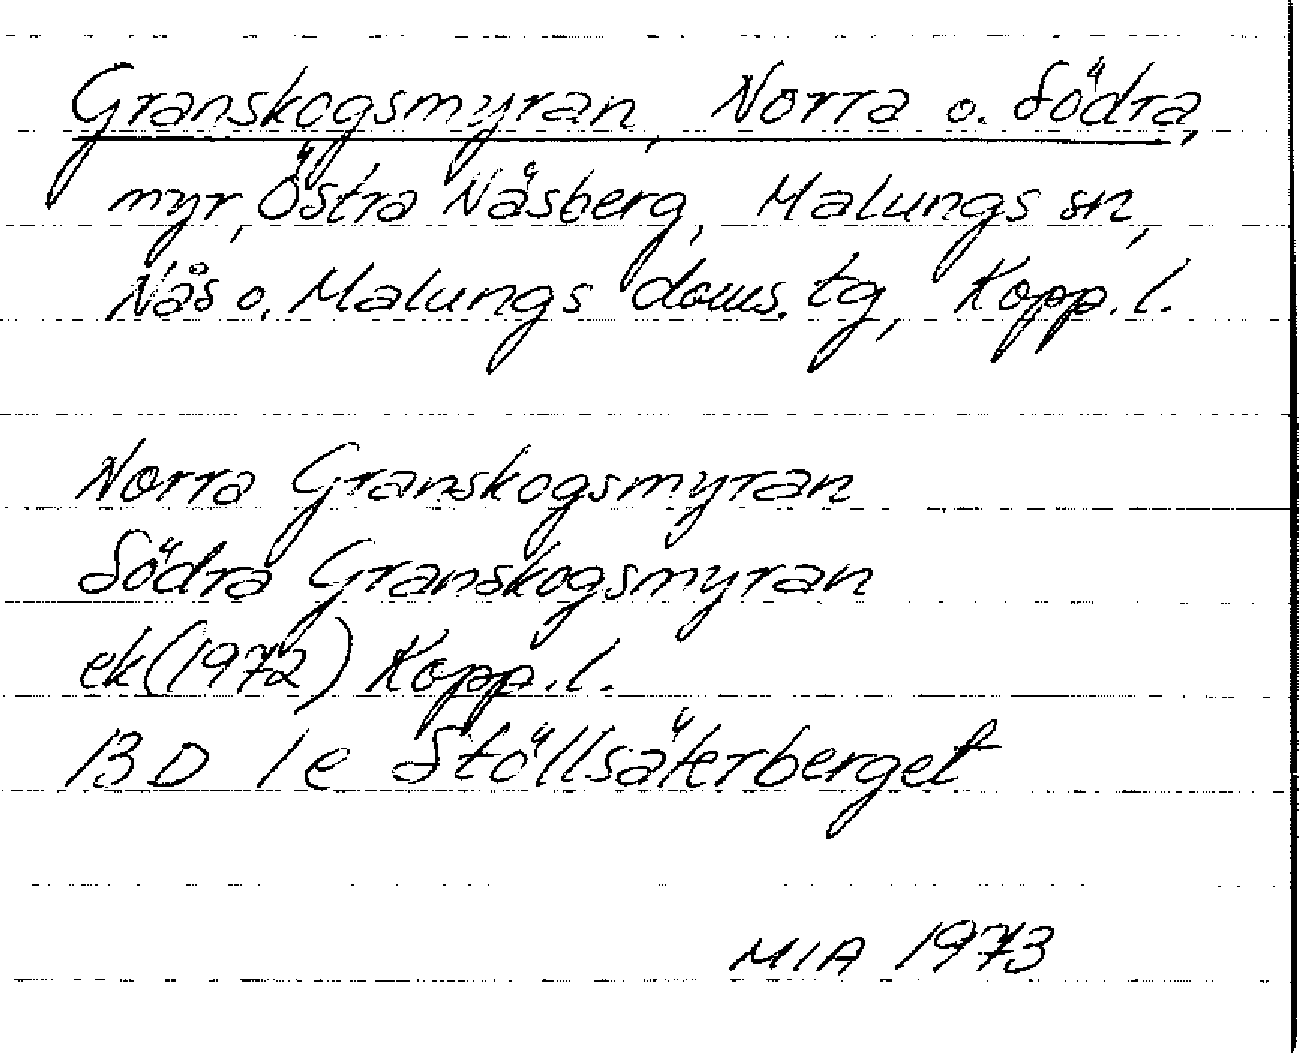 Granskogsmyran, Norra o. Södra,
myr, Östra Näsberg, Malungs sn,
Nås o. Malungs doms. tg, Kopp. l.
Norra Granskogsmyran
Södra Granskogsmyran
ek (1972) Kopp. l.
13 D 1 e Stöllsäterberget
MIA 1973